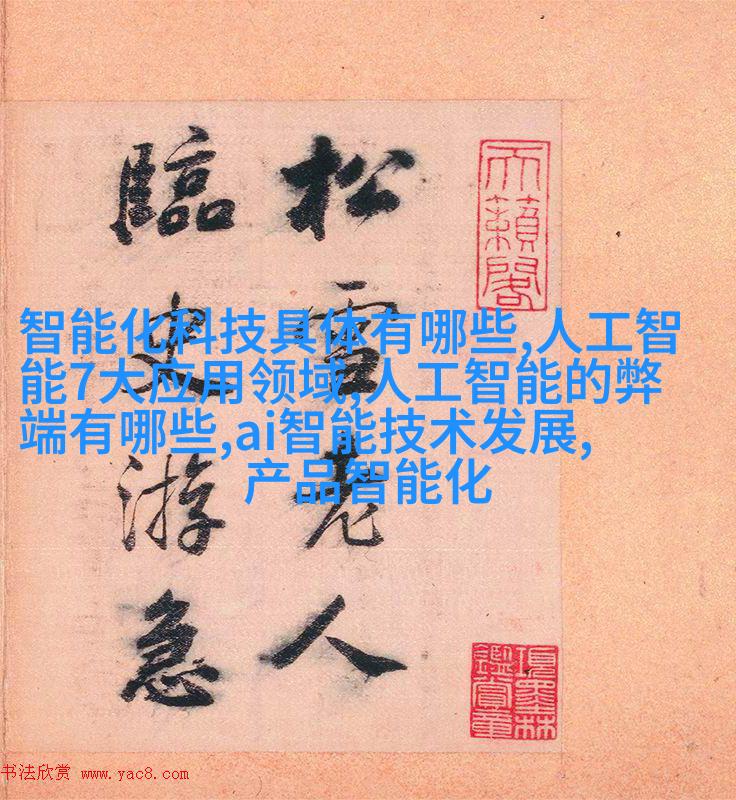 松雪老人
臨史游急
天籟閣
項墨林
鑑賞章
智能化科技具体有哪些,人工智
能7大应用领域,人工智能的弊
端有哪些,ai智能技术发展,
产品智能化
书法欣赏 www.yac8.com